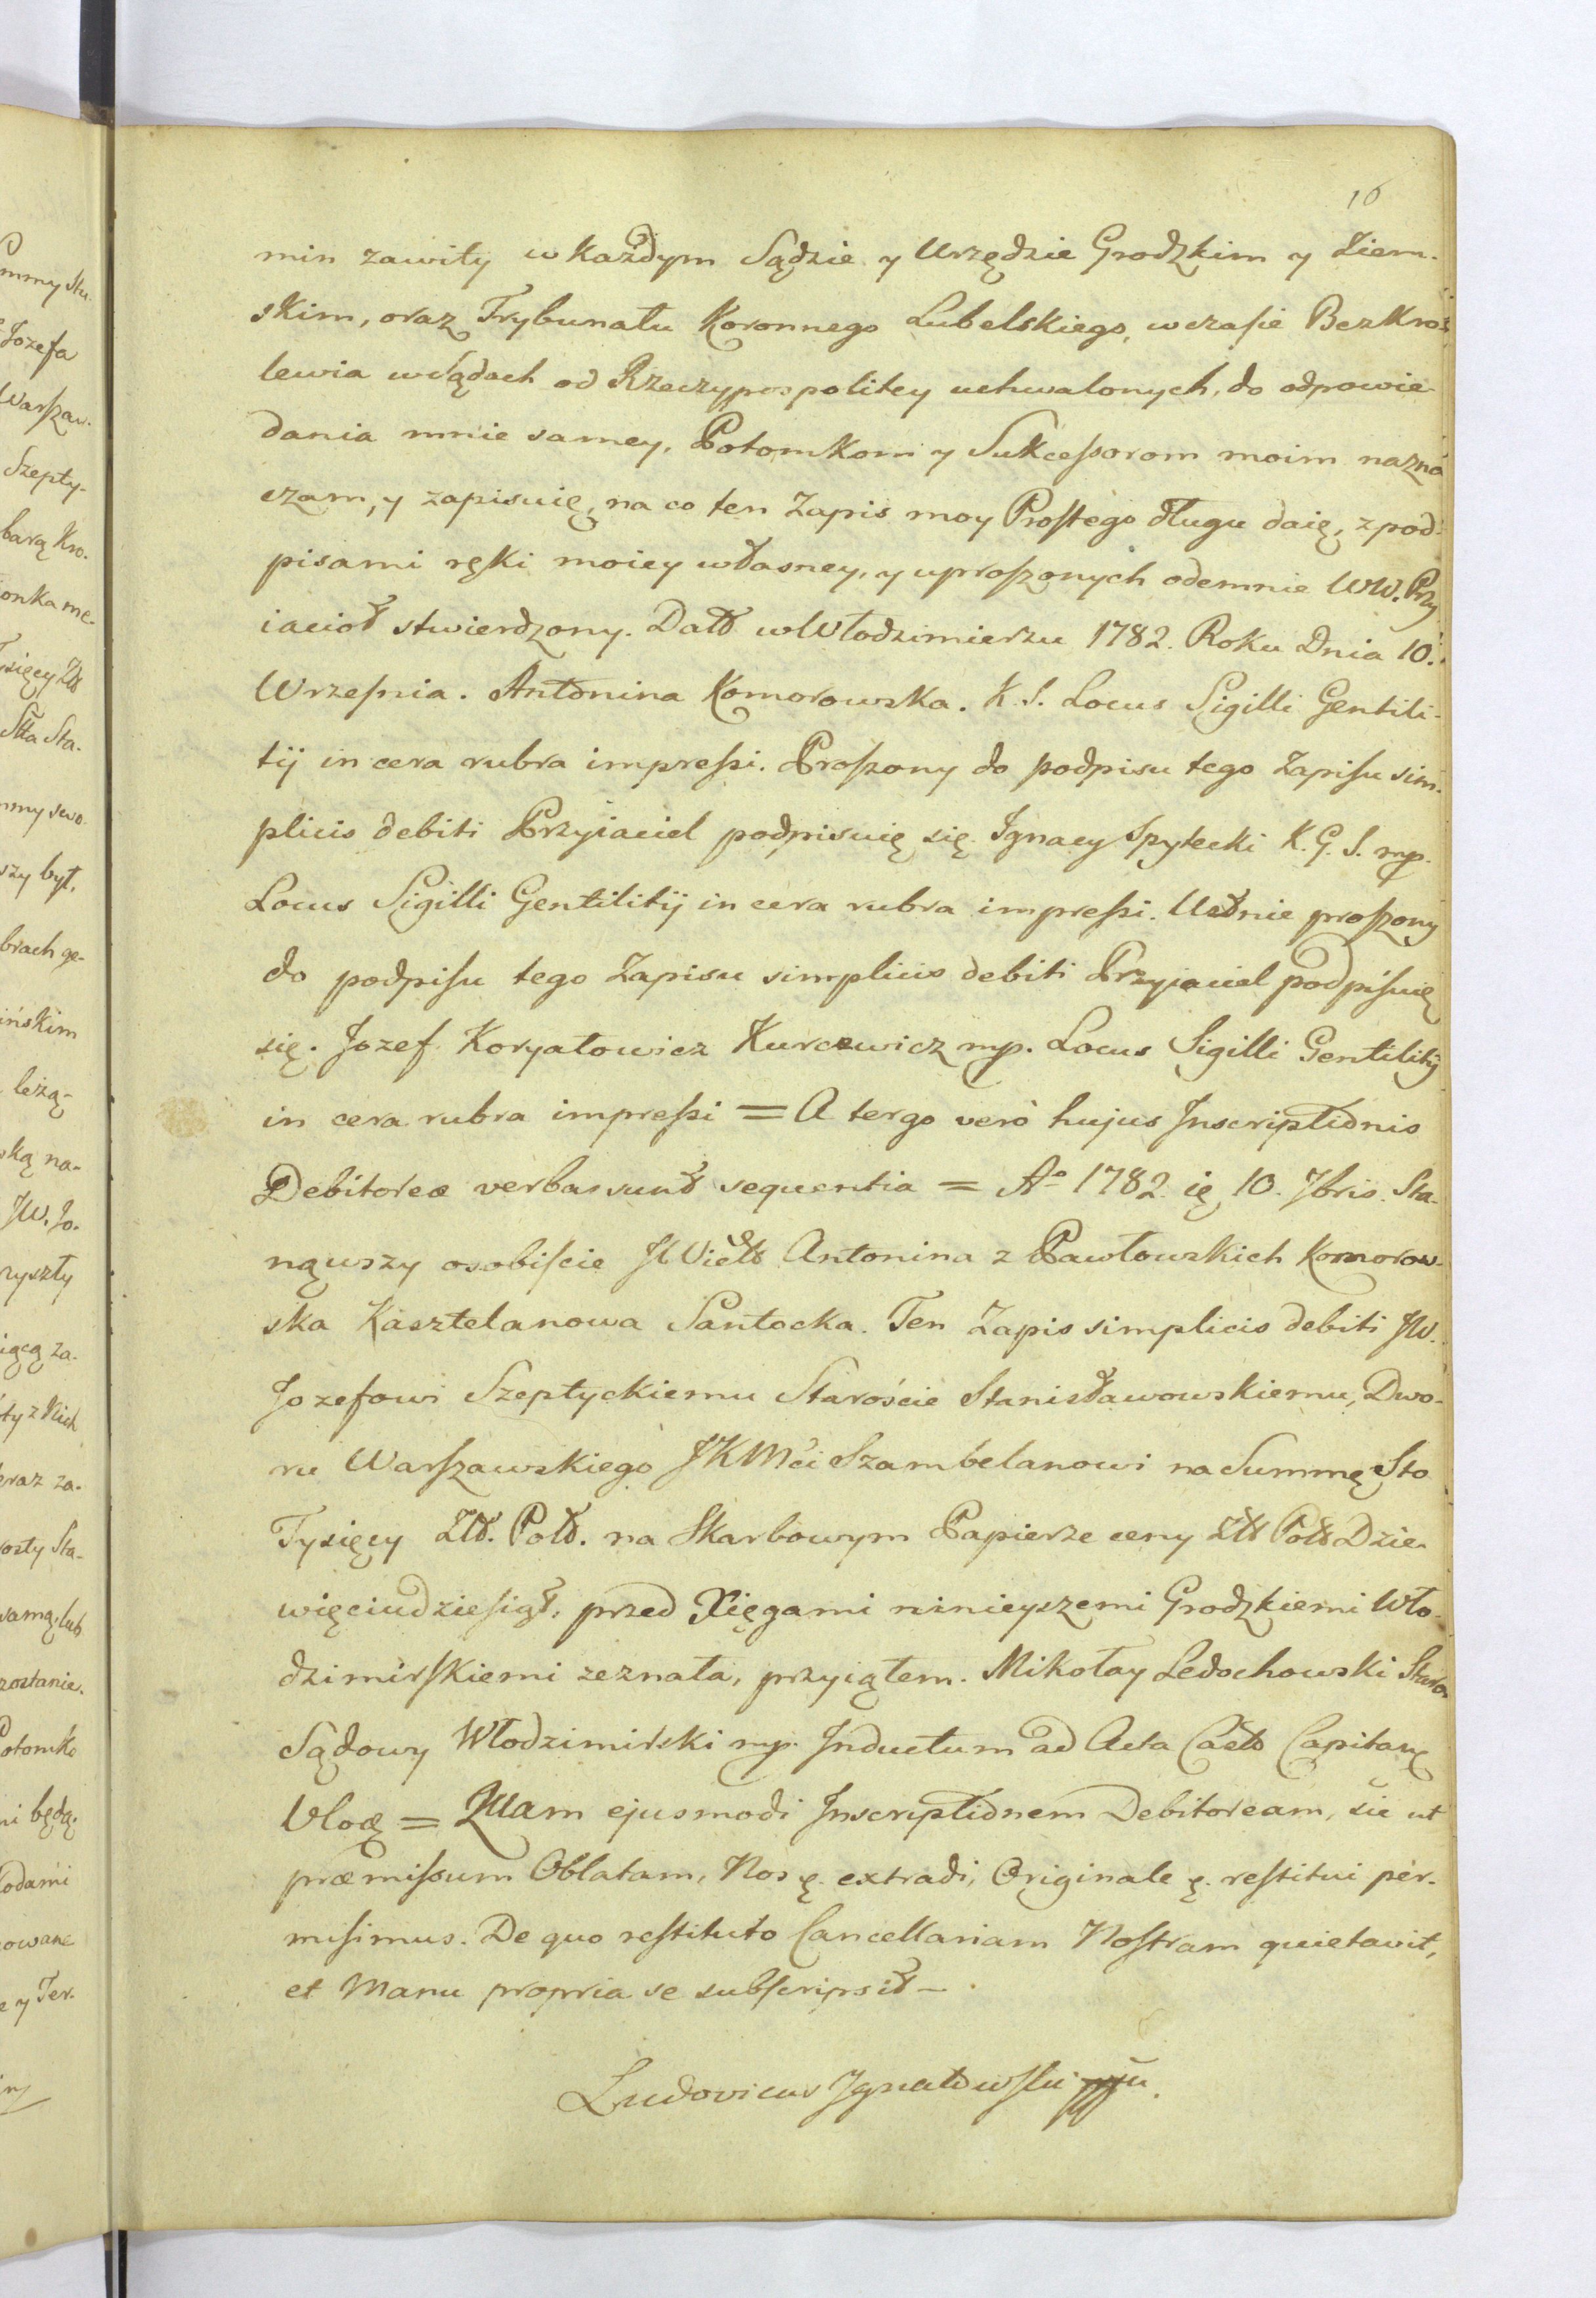 16
min zawity w każdym Sądzie y Urzędzie Grodzkim y Ziem-
skim, oraz Trybunatu Koronnego Lubelskiego, w czasie Bezkro-
lewia w Sądach od Rzeczypospolitey uchwalonych, do odpowie-
dania mnie samey, Potomkom y Sukcessorom moim nazna
czam, y zapisuię, na co ten Zapis moy Prostego długu daię, z pod-
pisami ręki moiey własney, y uproszonych odemnie WW. Przy
iacioł stwierdzony. Datt w Włodzimierzu 1782. Roku Dnia 10.
Wrzesnia. Antonina Komorowska. K. S. Locus Sigilli Gentili-
tij in cera rubra impressi. Proszony do podpisu tego Zapisu sim-
plicis debiti Przyiaciel podpisuię się Ignacy Spytecki K. G. S. mp.
Locus Sigilli Gentilitij in cera rubra impressi. Ustnie proszony
do podpisu tego Zapisu simplicis debiti Przyiaciel podpisuię
się. Jozef Koryatowicz Kurcewicz mp. Locus Sigilli Gentilitij
in cera rubra impressi = A tergo verò hujus Inscriptionis
Debitoreæ verba sunt sequentia = Aº 1782. 10. 7bris. Sta-
nąwszy osobiscie JW Antonina z Pawłowskich Komorow-
ska Kasztelanowa Santocka. Ten Zapis simplicis debiti JW.
Jozefowi Szeptyckiemu Staroście Stanisławowskiemu, Dwo-
ru Warszawskiego JKMci Szambelanowi na Summę Sto
Tysięcy Złt. Polt. na Skarbowym Papierze ceny Złt Polt Dzie-
więciudziesiąt, przed Xięgami ninieyszemi Grodzkiemi Wło-
dzimirskiemi zeznała, przyiąłem. Mikołay Ledochowski Staro
Sądowy Włodzimirski mp. Inductum ad Acta Capitanę
Vloæ = Quam ejusmodi Inscriptionem Debitoream, sic ut
præmissum Oblatam, Nos ę. extradi, Originale ę. restitui per-
misimus. De quo restituto Cancellariam Nostram quietavit,
et Manu propria se subscripsit –
Ludovicus Ignatowski
mmy
Jozefa
Warszaw.
Szepty-
barą Kro.
onka me-
sięcy Złt
Sta.
mmy swo
szy był,
brach ge-
ińskim
leżą-
ską na-
JW. Jo.
ryszty
iącą za-
ty z Nich
eraz za-
osty Sta-
samą, lub
zostanie.
Potomko
ni będą.
odami
owane
e y Ter.